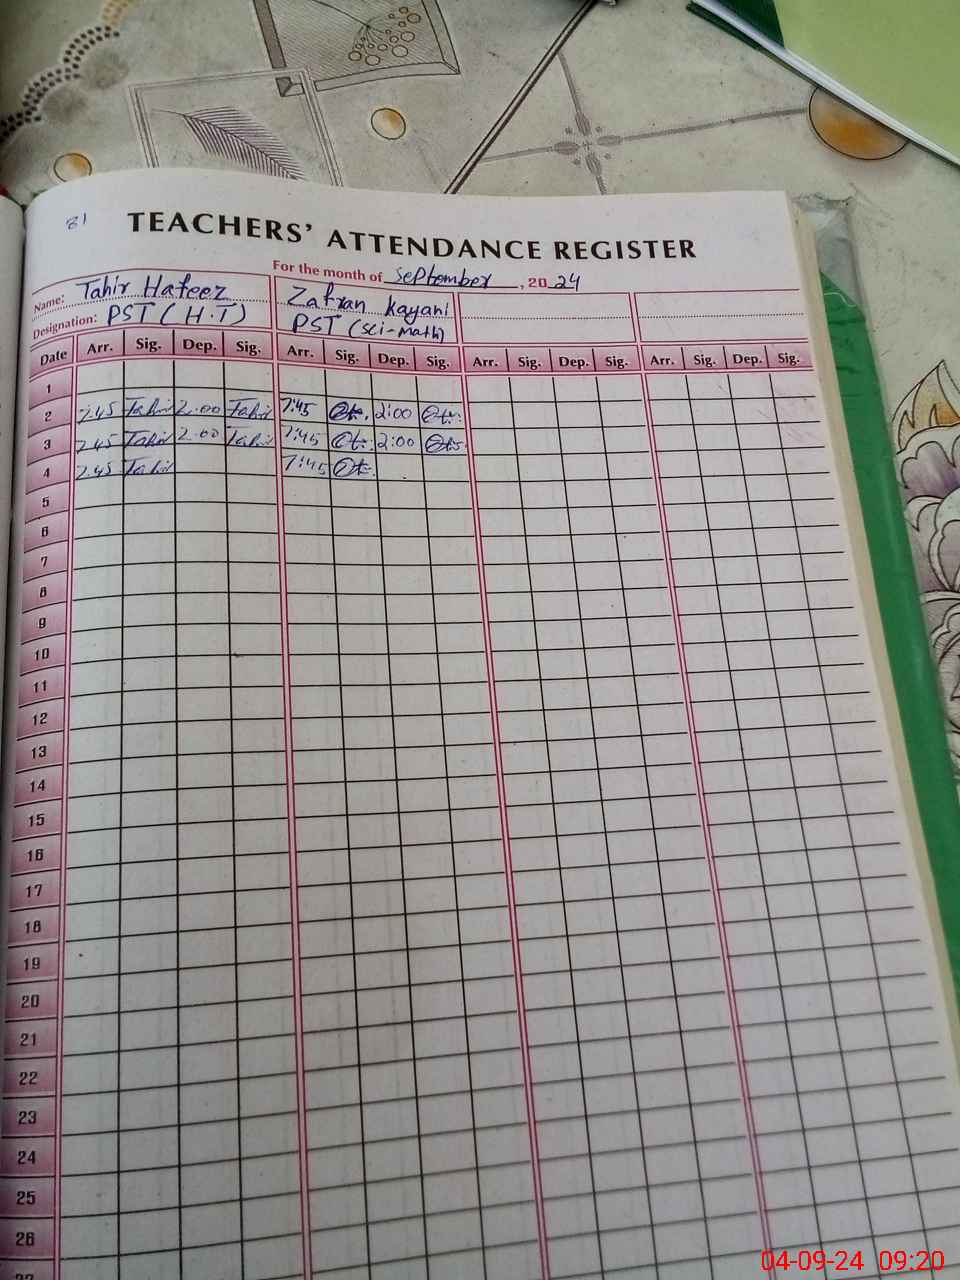 81
TEACHERS' ATTENDANCE REGISTER
For the month of September, 2024
Name: Tahir Hafeez Zafran Kayani
Designation: PST (H.T) PST (Sci-Math)
Date Arr. Sig. Dep. Sig. Arr. Sig. Dep. Sig. Arr. Sig. Dep. Sig. Arr. Sig. Dep. Sig.
1
2 7.45 Tahir 2.00 Tahir 7:45 2:00
3 7.45 Tahir 2.00 Tahir 7:45 2:00
4 7.45 Tahir 7:45
5
6
7
8
9
10
11
12
13
14
15
16
17
18
19
20
21
22
23
24
25
26
04-09-24 09:20